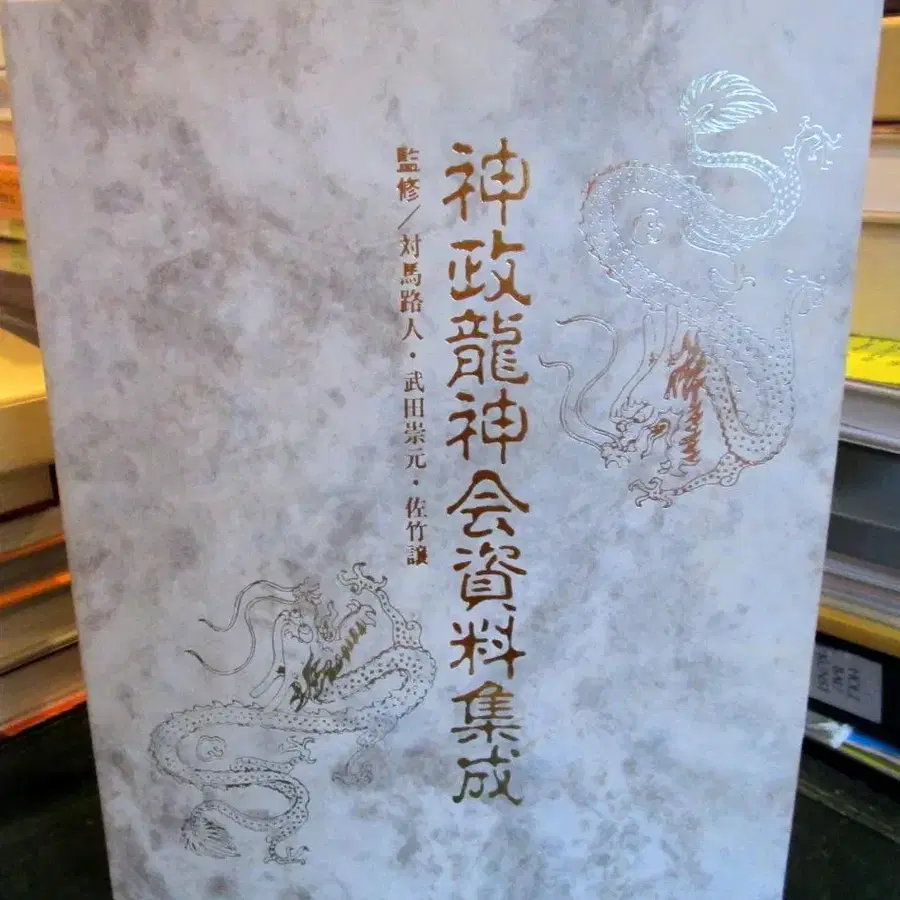 神政龍神会資料集成
監修/対馬路人・武田崇元・佐竹譲